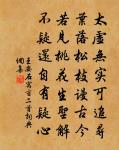 太虛無實可追尋
葉落松枝謾古今
若見桃花生聖解
不疑還自有疑心
王安石